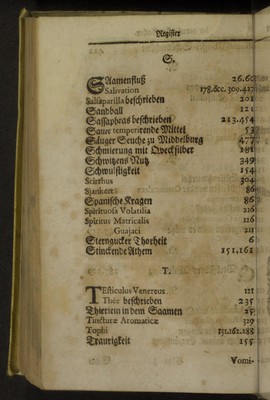 Register
S.
SAamenfluß 26.60
Salivation 178.&c. 309.427
Salsaparilla beschrieben 201
Sandball 121
Sassaphras beschrieben 213.454
Sauer temperirende Mittel 53
Säuger Seuche zu Middelburg 477
Schmierung mit Qvecksilber 281
Schwitzens Nutz 349
Schwulstigkeit 154
Scirrhus 304
86
Spanische Kragen 86
Spirituosa Volatilia 216
Spiritus Matricalis 116
Guajaci 211
Sterngucker Thorheit 6
Stinckende Athem 151.161
T.
TEsticulus Venereus 111
Thee beschrieben 235
Thierlein in dem Saamen 29
Tincturæ Aromaticæ 329
Tophi 151.162.188
Traurigkeit 155
Vomi-